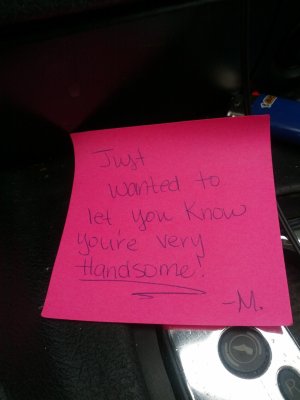 Just
wanted to
let you know
you're very
Handsome!
-M.